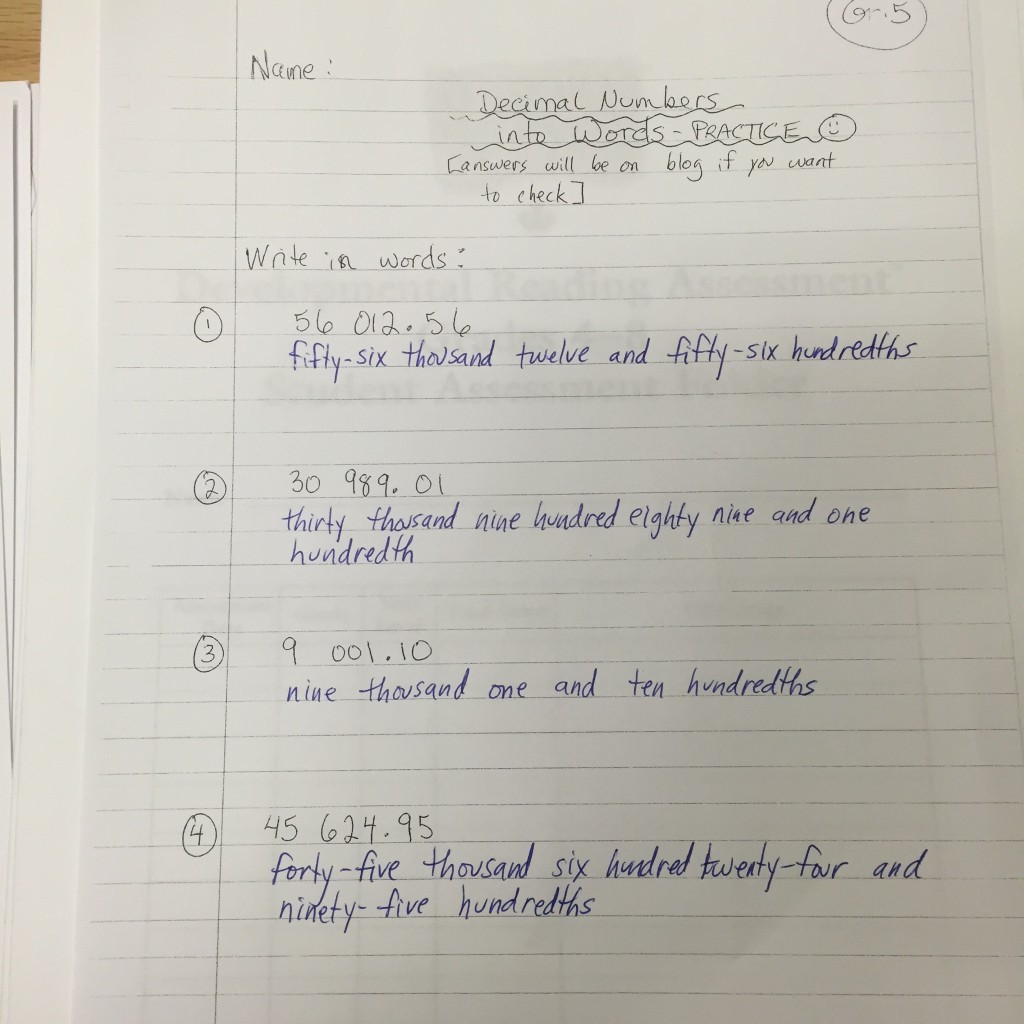 Gr.5
Name :
Decimal Numbers
into Words - PRACTICE
[answers will be on blog if you want
to check]
Write in words :
Developmental Reading Assessment
① 56 012.56
fifty-six thousand twelve and fifty-six hundredths
Student Assessment Folder
② 30 989.01
thirty thousand nine hundred eighty nine and one
hundredth
③ 9 001.10
nine thousand one and ten hundredths
④ 45 624.95
forty-five thousand six hundred twenty-four and
ninety-five hundredths